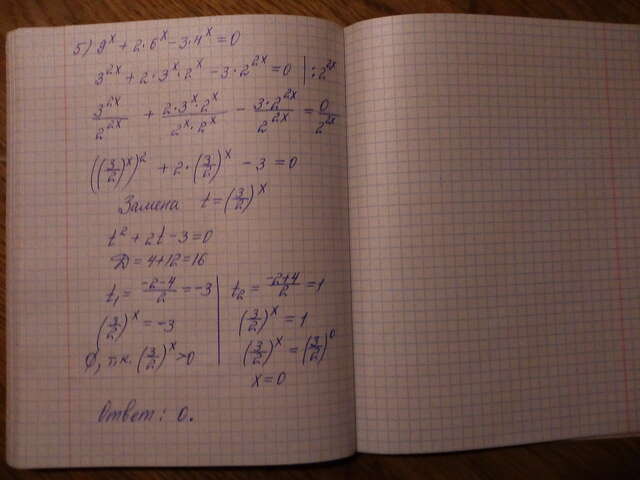 5) 9^x + 2·6^x − 3·4^x = 0
3^{2x} + 2·3^x·2^x − 3·2^{2x} = 0 | : 2^{2x}
\frac{3^{2x}}{2^{2x}} + \frac{2·3^x·2^x}{2^x·2^x} − \frac{3·2^{2x}}{2^{2x}} = \frac{0}{2^{2x}}
((\frac{3}{2})^x)^2 + 2·(\frac{3}{2})^x − 3 = 0
Замена t = (\frac{3}{2})^x
t^2 + 2t − 3 = 0
D = 4+12 = 16
t_1 = \frac{−2−4}{2} = −3
(\frac{3}{2})^x = −3
∅, т.к. (\frac{3}{2})^x > 0
t_2 = \frac{−2+4}{2} = 1
(\frac{3}{2})^x = 1
(\frac{3}{2})^x = (\frac{3}{2})^0
x = 0
Ответ: 0.